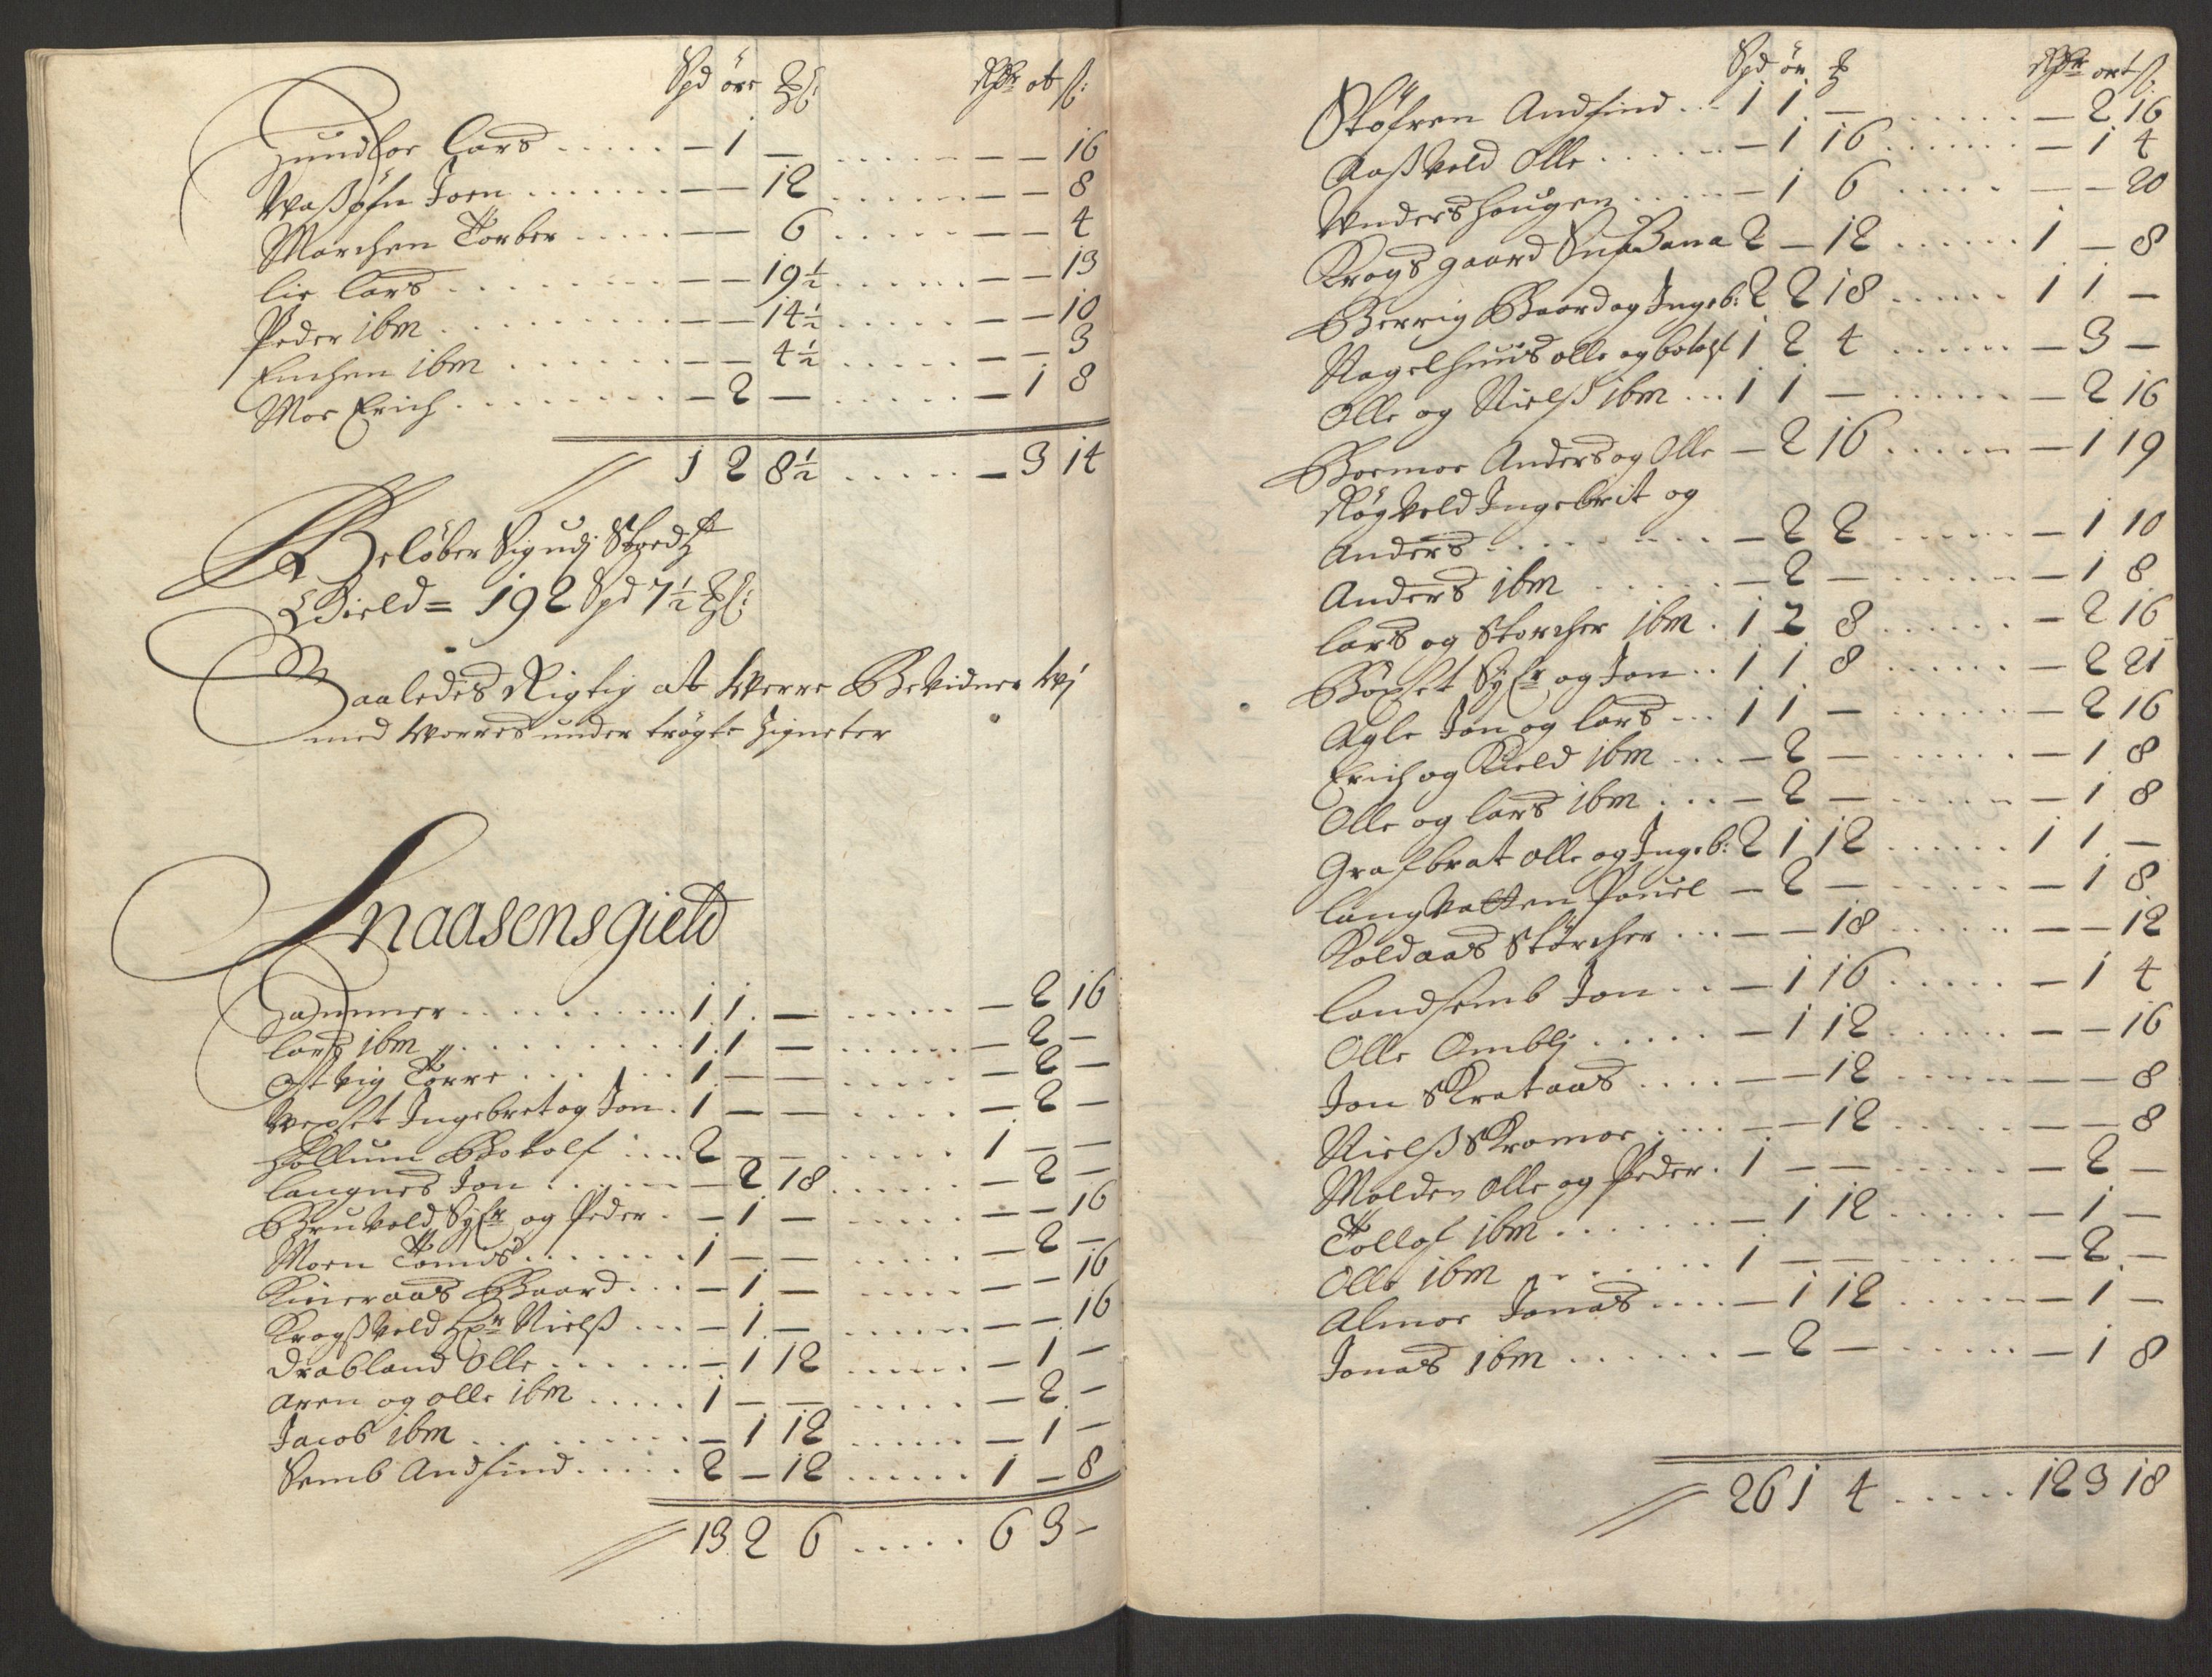 Spd öre ₰: Rdr ort ß:
Hundloe Lars ..... – 1 – ....... – – 16
Waßösn Joen ....... – – 12 ....... – – 8
Marchen Torber ..... – – 6 ..... – – 4
Lie Lars ....... – – 19½ ...... – – 13
Peder ibm ......... – – 14½ ..... – – 10
Enchen ibm ....... – – 4½ ..... – – 3
Moe Erich ........ – 2 – ..... – 1 8
1 2 8½ ..... – 3 14
Beløber Sig udj
Gield = 192 Spd 7½ ₰:
Saaledis Rigtig at Werre Bekidner Wj
med Worres under trögte Zigneter
Snaasens gield
Hammer ......... 1 1 – ...... – 2 16
Lars ibm ......... 1 1 – ...... – 2 –
Ostvig Torre ....... 1 – – ...... – 2 –
Wexset Ingebret og Jon . 1 – – ..... – 2 –
Hollum Botolf .... 2 – – ..... 1 – –
Langnes Jon ...... – 2 18 ...... – 2 –
Gruveld Syfr og Peder . – 1 – ..... – – 16
Moen Tomas ....... 1 – – ..... – 2 –
Kieneraas Baard ... – 1 – ..... – – 16
Krogßveld Hr Nielß ... – 1 – ...... – – 16
Drabland Olle ...... – 1 12 ..... – 1 –
Aren og olle ibm ..... 1 – – ..... – 2 –
Jacob ibm ......... – 1 12 ...... – 1 –
Semb Andfind ..... 2 – 12 ...... 1 – 8
13 2 6 ..... 6 3 –
Spd ör ₰ Rdr ort ß:
Stöfren Andfind .. 1 1 – ...... – 2 16
Aaßveld Olle ..... – 1 16 ...... – 1 4
Wndershougen ..... – 1 6 ..... – – 20
Krogsgaard 2 – 12 ...... 1 – 8
Berrig Baard og Ingeb: 2 2 18 ...... 1 1 –
Nagelhuus olle og botolf 1 2 4 ..... – 3 –
Olle og Nielß ibm ... 1 1 – ...... – 2 16
Boemoe Anders og Olle – 2 16 ...... – 1 19
Rögveld Ingebrit og
Anders ......... – 2 2 ..... – 1 10
Anders ibm ...... – 2 – ...... – 1 8
Lars og Storcher ibm . 1 2 8 ...... – 2 16
Böxset Syfr og Jon .. 1 1 8 ...... – 2 21
Agle Jon og Lars ... 1 1 – ...... – 2 16
Erich og Kield ibm ... – 2 – ...... – 1 8
Olle og Lars ibm ... – 2 – ...... – 1 8
Grafbrat olle og Ingeb: 2 1 12 ...... 1 1 –
Langvatten Pouel – 2 – ...... – 1 8
Koldaas Störcher ... – – 18 ...... – – 12
Landsemb Jon .. – 1 16 ...... – 1 4
Olle Omblj ..... – 1 12 ...... – – 16
Jon Skrataas .... – – 12 ...... – – 8
Nielß Skromoe .... – – 12 ...... – – 8
Molden Olle og Peder . 1 – – ...... – 2 –
Tollof ibm ....... – 1 12 ...... – 1 –
Olle ibm ....... 1 – – ...... – 2 –
Almoe Jonas .... – 1 12 ...... – 1 –
Jonas ibm ...... – 2 – ...... – 1 8
26 1 4 ..... 12 3 18